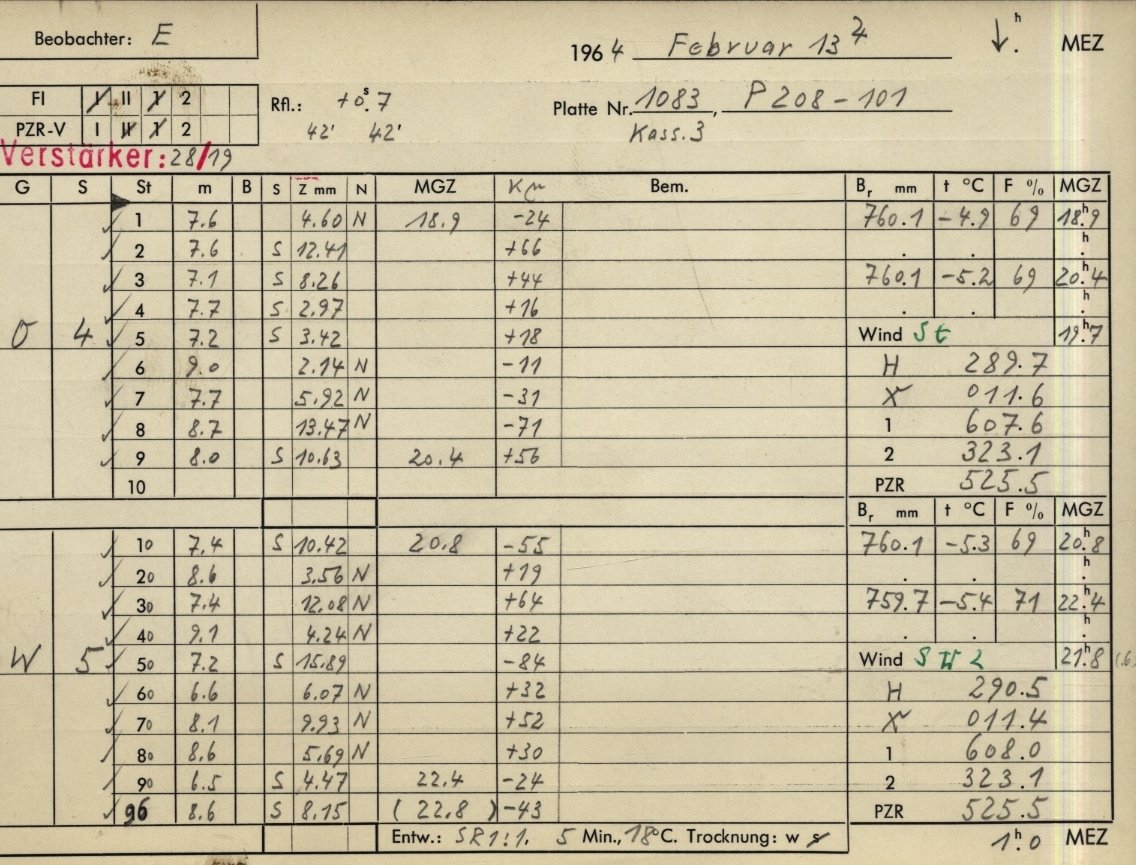 Beobachter: E
1964 Februar 13 h . MEZ
FI I II 1 2
PZR-V I II 1 2
Rfl.: +0.s7
42' 42'
Platte Nr. 1083, P 208-101
Kass. 3
Verstärker: 28/19
G S St m B S Z mm N MGZ Bem. Br mm t °C F % MGZ
1 7.6 4.60 N 18.9 -24 760.1 -4.9 69 18h.9
2 7.6 S 12.41 +66 . . h.
3 7.1 S 8.26 +44 760.1 -5.2 69 20h.4
4 7.7 S 2.97 +16 . . h.
O 4 5 7.2 S 3.42 +18 Wind St 19h.7
6 9.0 2.14 N -11 H 289.7
7 7.7 5.92 N -31 X 011.6
8 8.7 13.47 N -71 1 607.6
9 8.0 S 10.63 20.4 +56 2 323.1
10 PZR 525.5
Br mm t °C F % MGZ
10 7.4 S 10.42 20.8 -55 760.1 -5.3 69 20h.8
20 8.6 3.56 N +19 . . h.
30 7.4 12.08 N +64 759.7 -5.4 71 22h.4
40 9.1 4.24 N +22 . . h.
W 5 50 7.2 S 15.89 -84 Wind S 21h.8 (.6)
60 6.6 6.07 N +32 H 290.5
70 8.1 9.93 N +52 X 011.4
80 8.6 5.69 N +30 1 608.0
90 6.5 S 4.47 22.4 -24 2 323.1
96 8.6 S 8.15 (22.8) -43 PZR 525.5
Entw.: SR 1:1. 5 Min., 18°C. Trocknung: w s 1h.0 MEZ